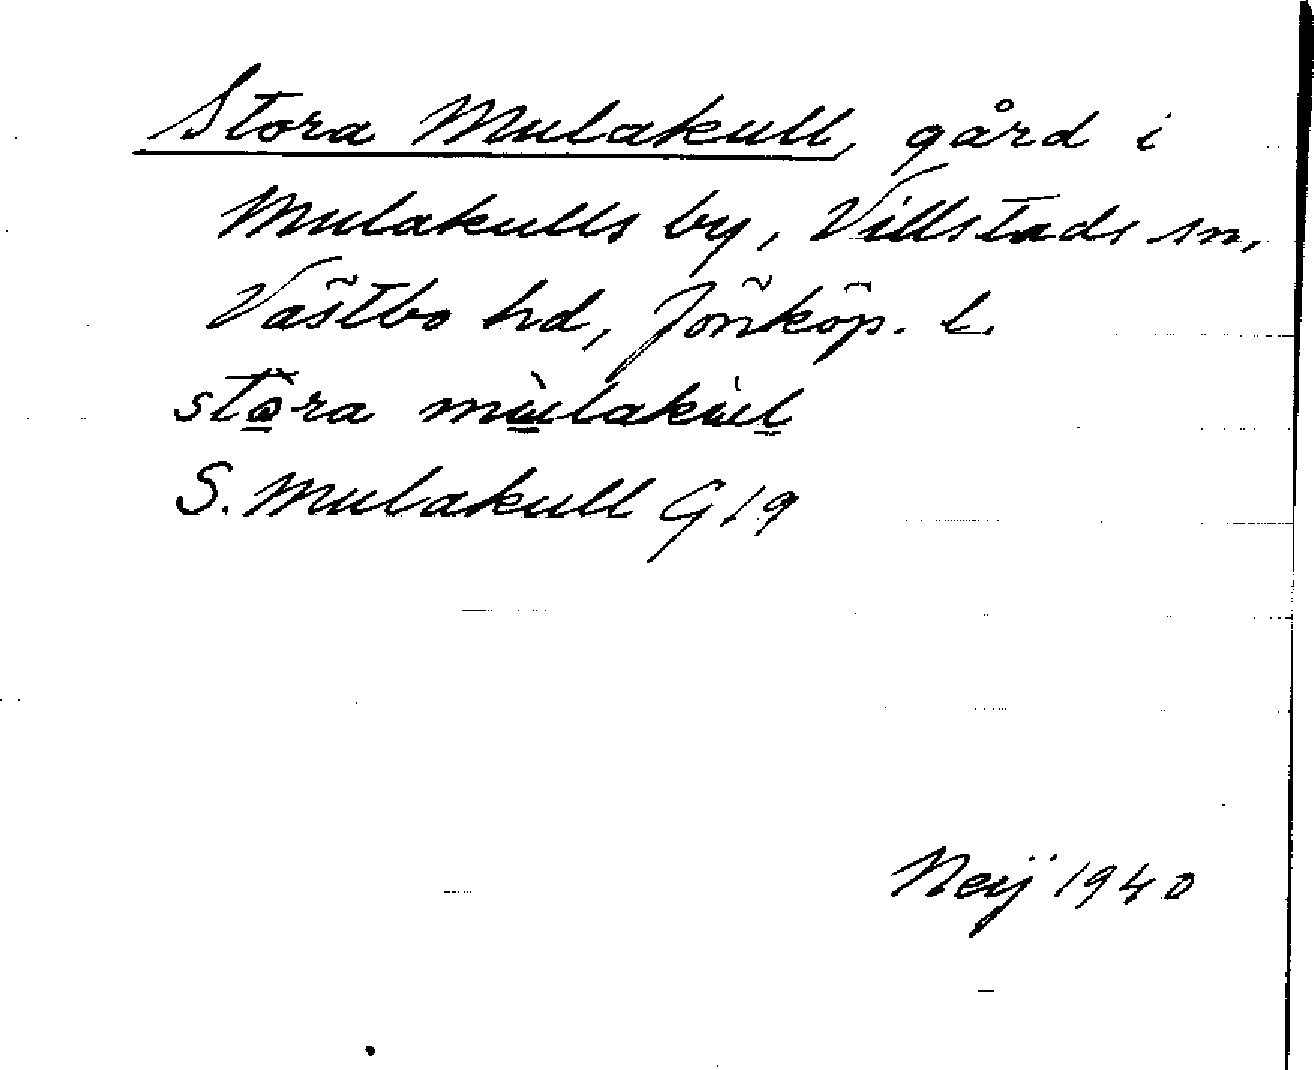 Stora Mulakull, gård i
Mulakulls by, Villstads sn,
Västbo hd, Jönköp. L.
störa mùlakùl
S. Mulakull G 19
Neij 1940